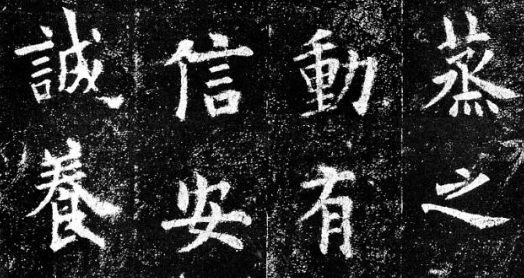 蒸之
動有
信安
誠養